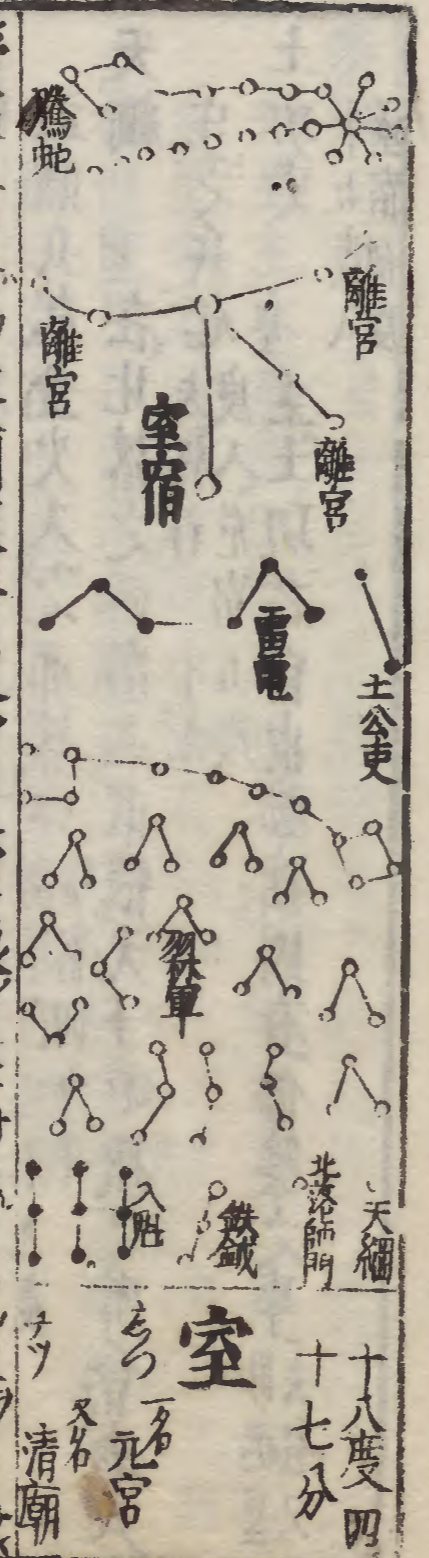 騰蛇
離宮
離宮
離宮
室宿
雷電
土公吏
羽林軍
天綱
北落師門
鈇鉞
八魁
十八度四
十七分
室
一名元宮
又名清廟